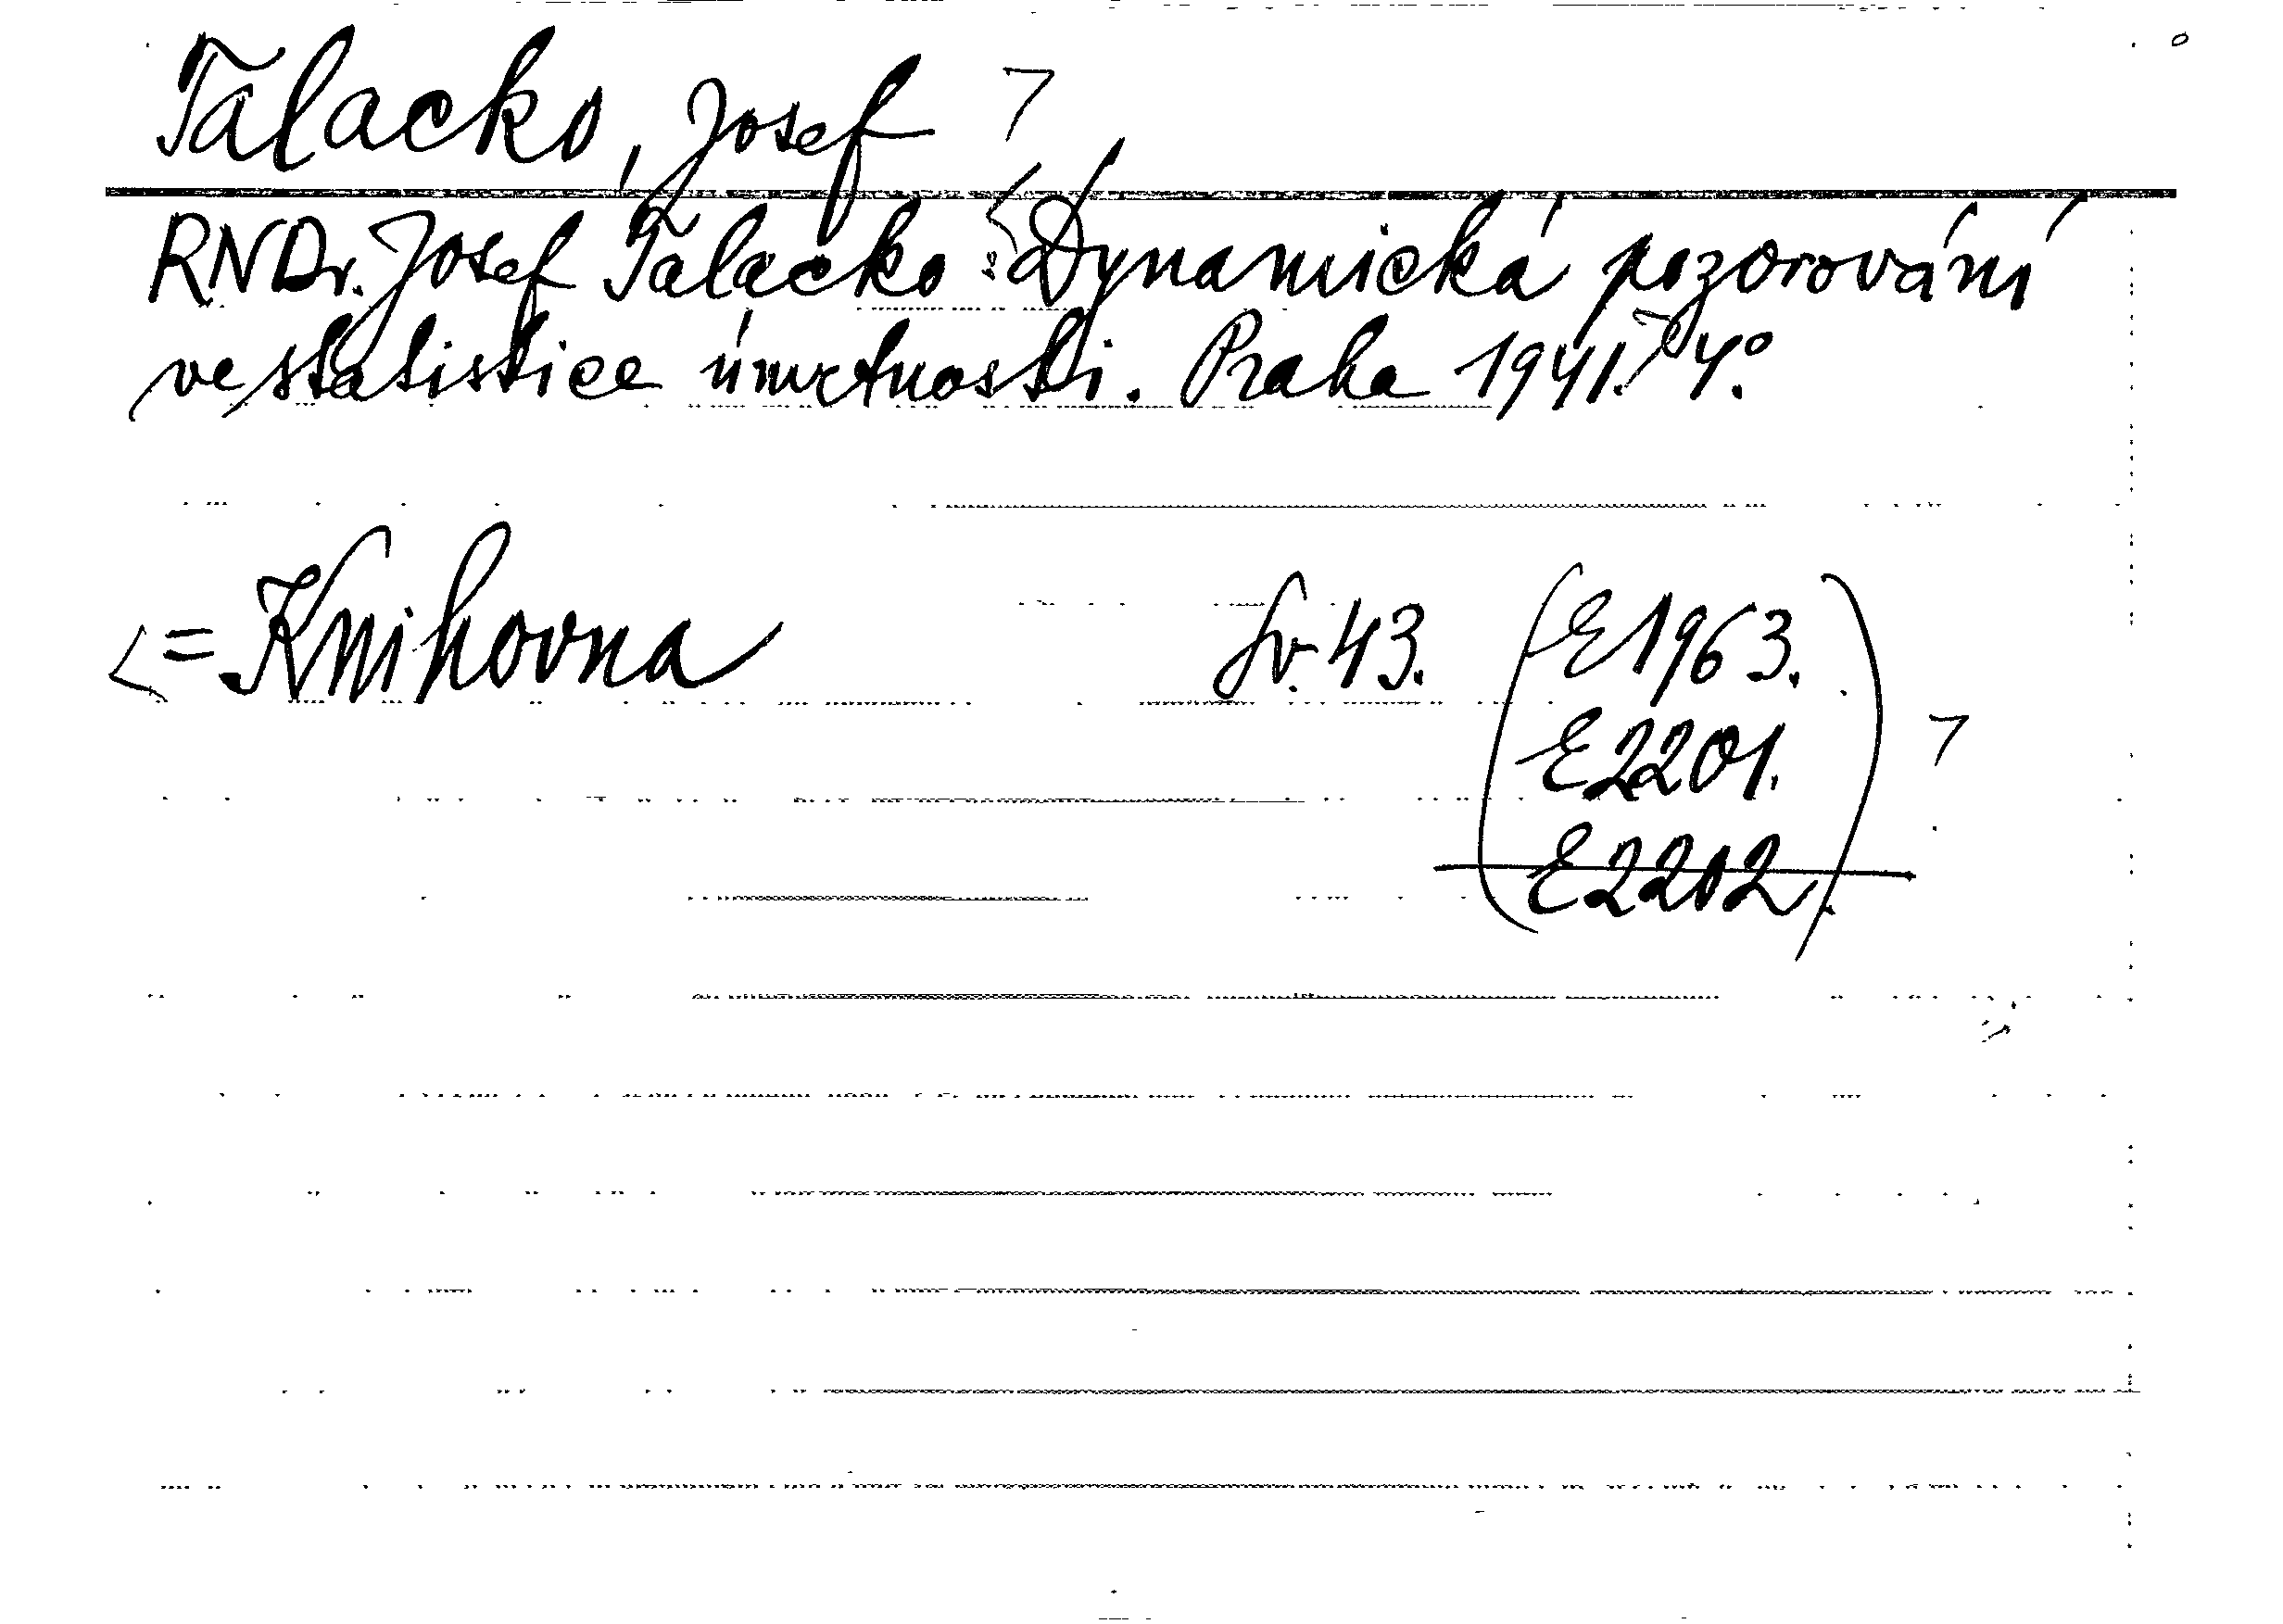 Talacko, Josef
RNDr. Josef Talacko: Dynamická pozorování
ve statistice úmrtnosti. Praha 1941. 4°.
= Knihovna Sv. 43. (E 1963.
E 2201.
E 2202.)